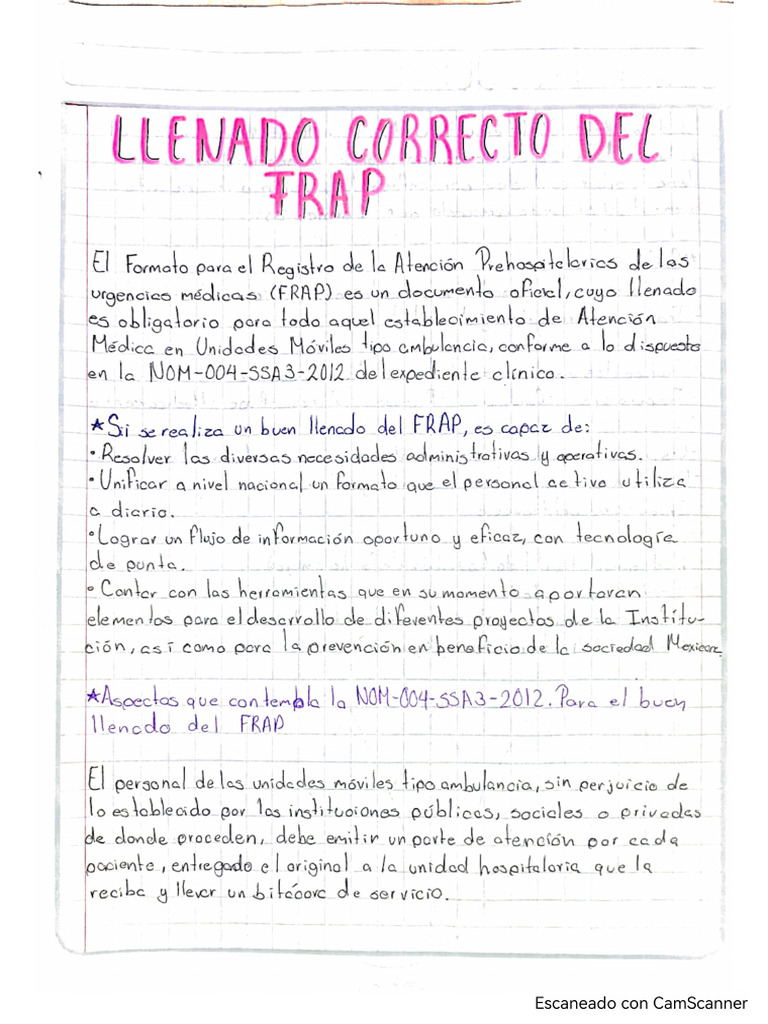 LLENADO CORRECTO DEL
FRAP
El Formato para el Registro de la Atención Prehospitalarias de las
urgencias médicas (FRAP) es un documento oficial, cuyo llenado
es obligatorio para todo aquel establecimiento de Atención
Médica en Unidades Móviles tipo ambulancia, conforme a lo dispuesto
en la NOM-004-SSA3-2012 del expediente clínico.
★Si se realiza un buen llenado del FRAP, es capaz de:
• Resolver las diversas necesidades administrativas y operativas.
• Unificar a nivel nacional un formato que el personal activo utiliza
a diario.
• Lograr un flujo de información oportuno y eficaz, con tecnología
de punta.
• Contar con las herramientas que en su momento aportaran
elementos para el desarrollo de diferentes proyectos de la Institu-
ción, así como para la prevención en beneficio de la sociedad Mexicana.
★Aspectos que contempla la NOM-004-SSA3-2012. Para el buen
llenado del FRAP
El personal de las unidades móviles tipo ambulancia, sin perjuicio de
lo establecido por las instituciones públicas, sociales o privadas
de donde proceden, debe emitir un parte de atención por cada
paciente, entregado el original a la unidad hospitalaria que la
reciba y llevar un bitácora de servicio.
Escaneado con CamScanner